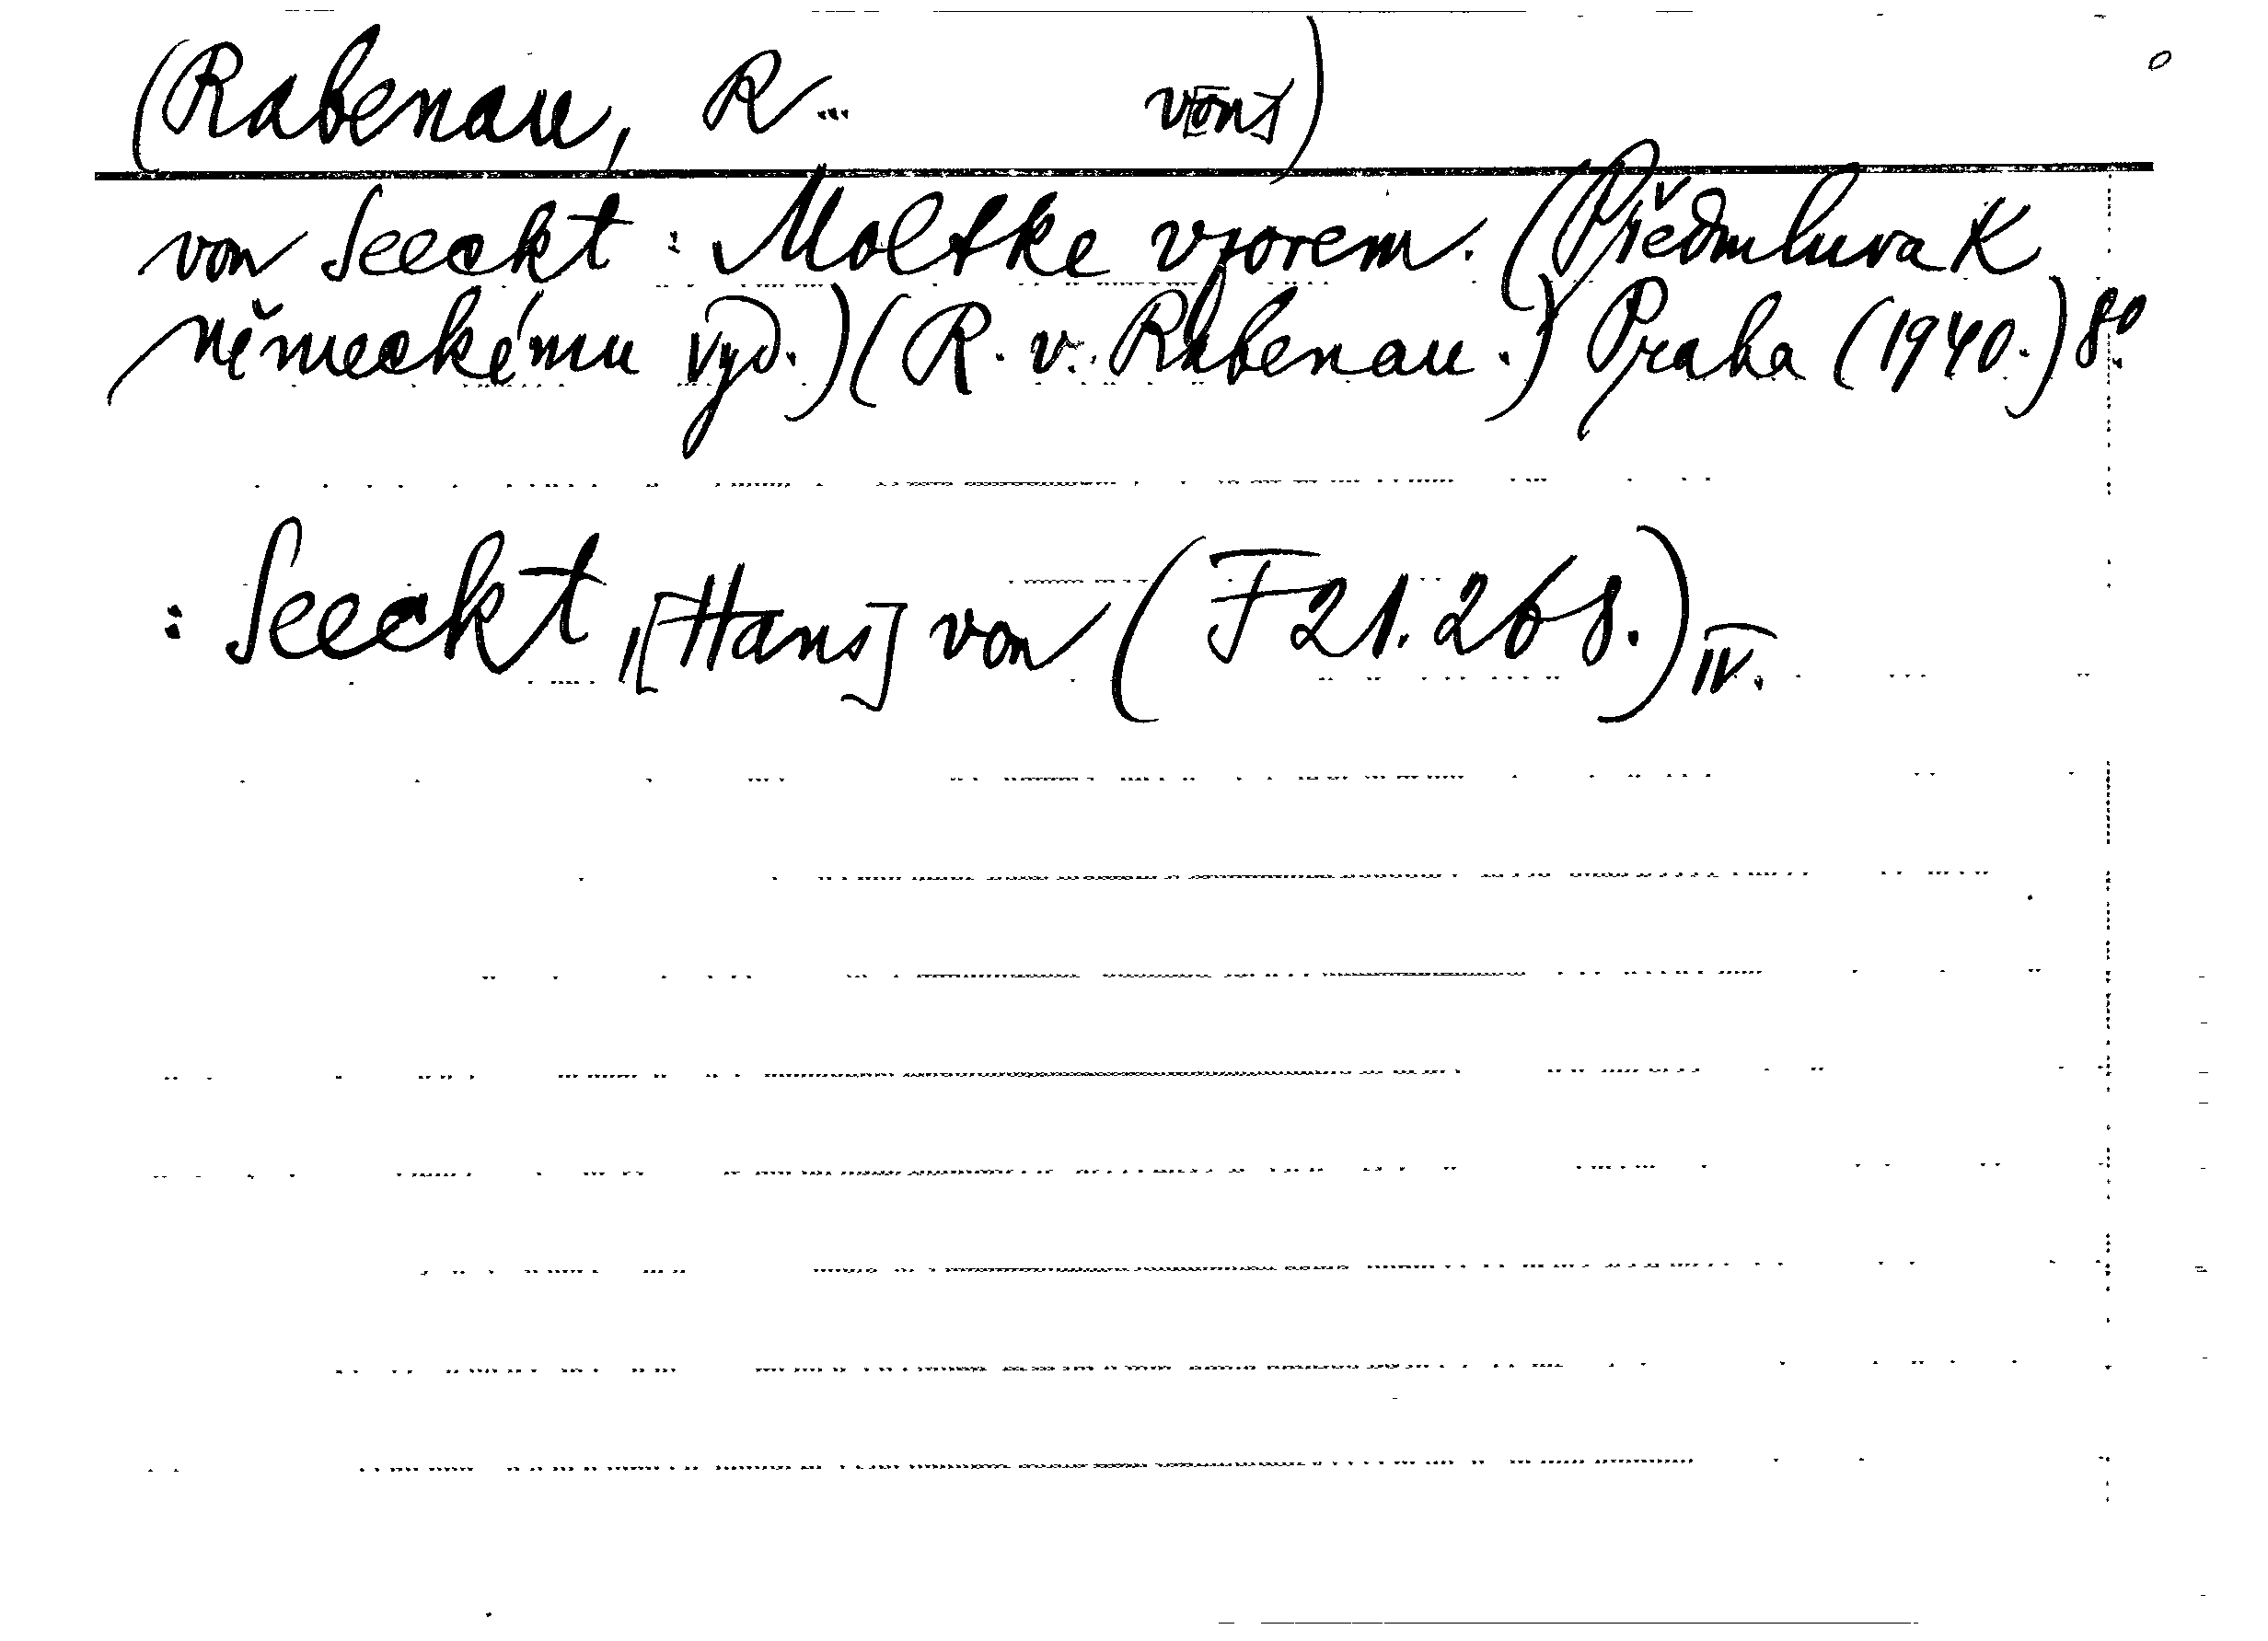 (Rabenau, R... v[on])
von Seeckt: Moltke vzorem. (Předmluva k
německému vyd.) (R. v. Rabenau.) Praha (1940.) 8°.
: Seeckt, [Hans] von (F 21.268.) IV.